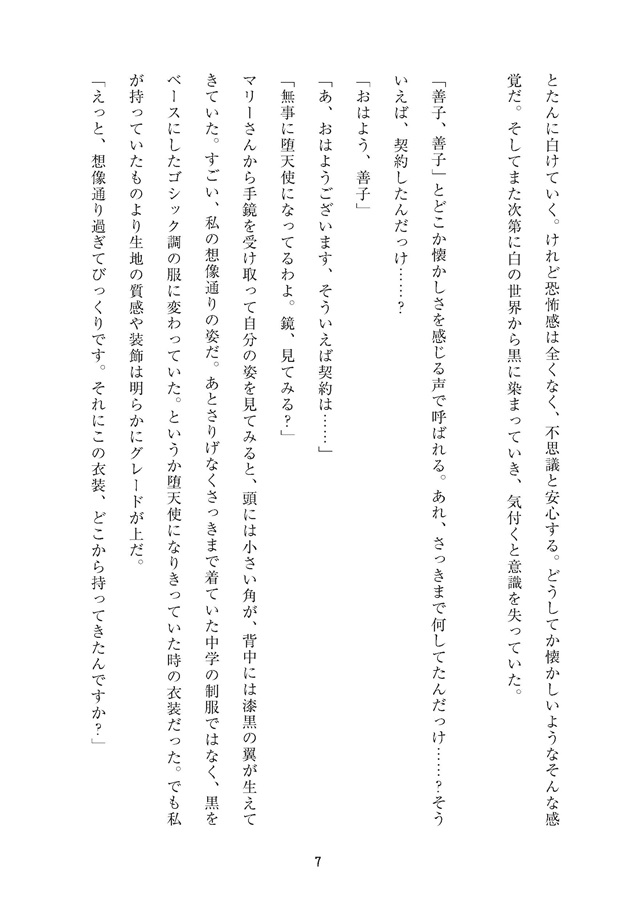 とたんに白けていく。けれど恐怖感は全くなく、不思議と安心する。どうしてか懐かしいようなそんな感
覚だ。そしてまた次第に白の世界から黒に染まっていき、気付くと意識を失っていた。
「善子、善子」とどこか懐かしさを感じる声で呼ばれる。あれ、さっきまで何してたんだっけ……？そう
いえば、契約したんだっけ……？
「おはよう、善子」
「あ、おはようございます、そういえば契約は……」
「無事に堕天使になってるわよ。鏡、見てみる？」
マリーさんから手鏡を受け取って自分の姿を見てみると、頭には小さい角が、背中には漆黒の翼が生えて
きていた。すごい、私の想像通りの姿だ。あとさりげなくさっきまで着ていた中学の制服ではなく、黒を
ベースにしたゴシック調の服に変わっていた。というか堕天使になりきっていた時の衣装だった。でも私
が持っていたものより生地の質感や装飾は明らかにグレードが上だ。
「えっと、想像通り過ぎてびっくりです。それにこの衣装、どこから持ってきたんですか？」
7